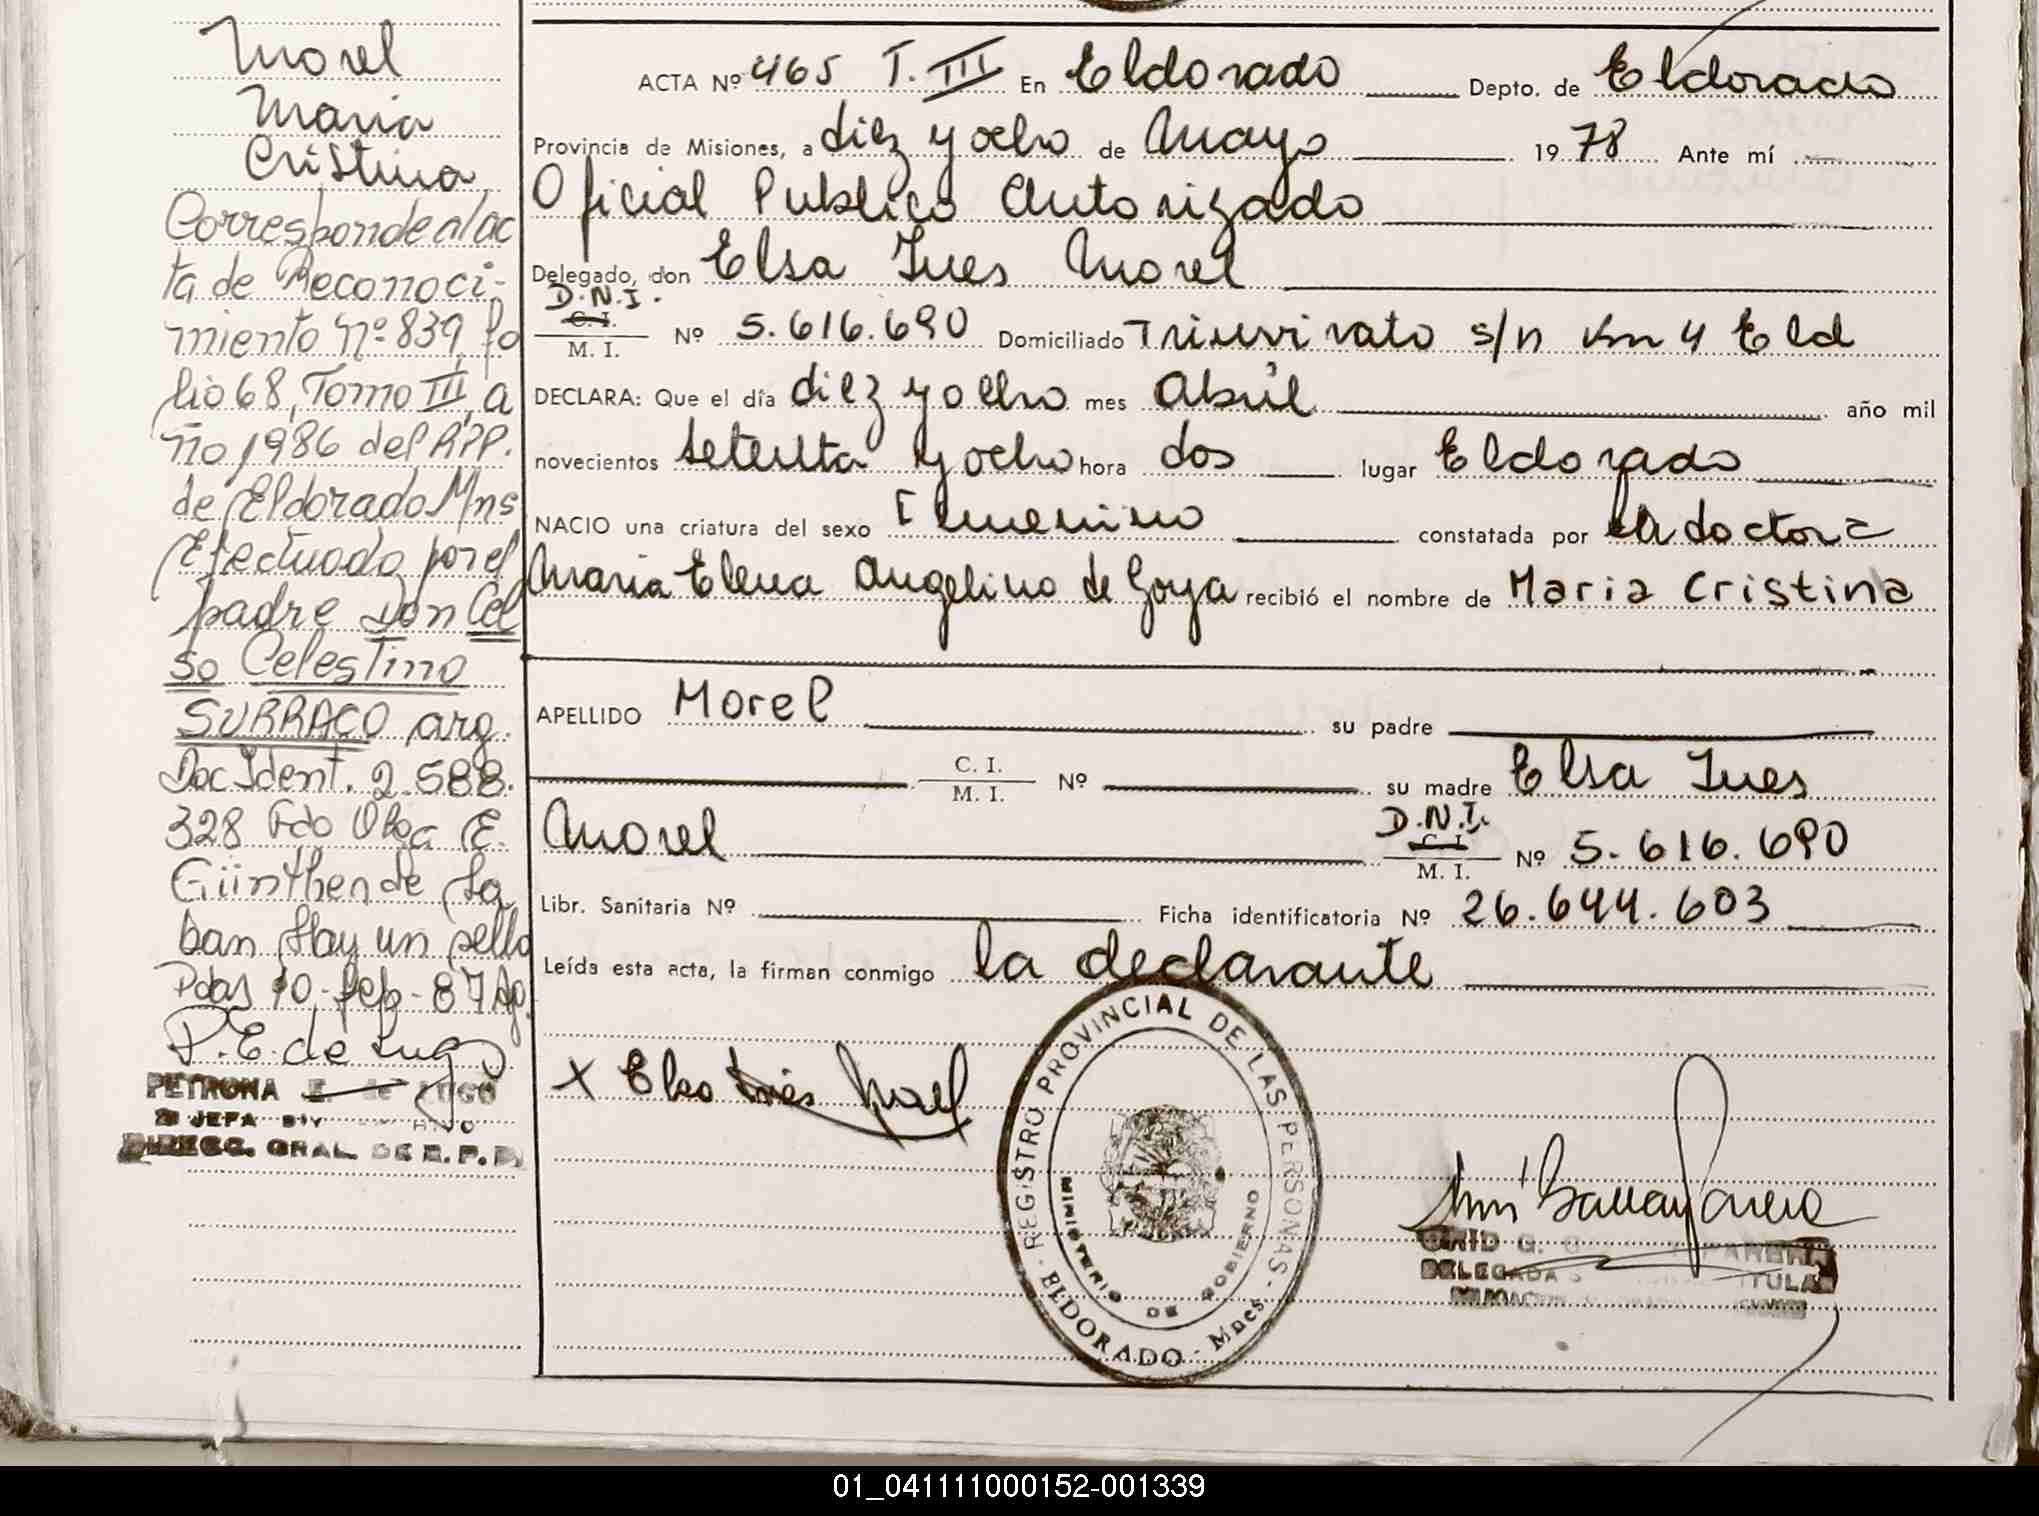 Morel
Maria
Cristina
Corresponde al ac
ta de Reconoci-
miento Nº 839, fo
lio 68, Tomo III, a
ño 1986 del RPP.
de Eldorado Mns
Efectuado por el
padre Don Cel
so Celestino
SURRACO arg.
Doc Ident. 2.588.
328 Fdo Olga E.
Günther de
ban Hay un sello
Pdas 10-feb-87
P.E. de Lugo
PETRONA E. de LUGO
JEFA DIV
DIRECC. GRAL. DE R. P. P.
ACTA Nº 465 T. III En Eldorado Depto. de Eldorado
Provincia de Misiones, a diez y ocho de Mayo 1978 Ante mí
Oficial Publico Autorizado
Delegado, don Elsa Ines Morel
D.N.I.
C. I.
M. I. Nº 5.616.690 Domiciliado Triunvirato s/n Km 4 Eld
DECLARA: Que el día diez y ocho mes Abril año mil
novecientos setenta y ocho hora dos lugar Eldorado
NACIO una criatura del sexo Femenino constatada por la doctora
Maria Elena Angelino de Goya recibió el nombre de Maria Cristina
APELLIDO Morel su padre
C. I.
M. I. Nº su madre Elsa Ines
Morel D.N.I. C. I. M. I. Nº 5.616.690
Libr. Sanitaria Nº Ficha identificatoria Nº 26.644.603
Leída esta acta, la firman conmigo la declarante
x Elsa Ines Morel
REGISTRO PROVINCIAL DE LAS PERSONAS - ELDORADO - Mnes.
MINISTERIO DE GOBIERNO
G.
DELEGADA TITULAR
01_041111000152-001339